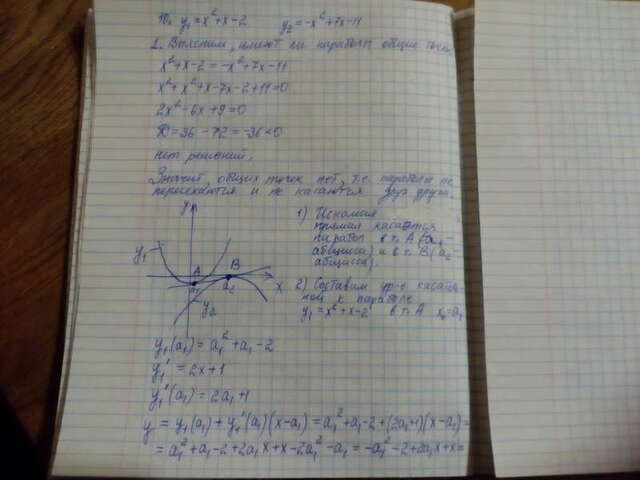 10. y₁=x²+x-2 y₂=-x²+7x-11
1. Выясним, имеют ли параболы общие точки
x²+x-2=-x²+7x-11
x²+x²+x-7x-2+11=0
2x²-6x+9=0
D=36-72=-36<0
нет решений.
Значит, общих точек нет, т.е. параболы не
пересекаются и не касаются друг друга.
y
y₁
A
B
a₁
a₂
x
y₂
1) Искомая
прямая касается
парабол в т. A (a₁ -
абсцисса) и в т. B (a₂
абсцисса).
2) Составим ур-е касатель-
ной к параболе
y₁=x²+x-2 в т. A x₀=a₁
y₁(a₁)=a₁²+a₁-2
y₁'=2x+1
y₁'(a₁)=2a₁+1
y=y₁(a₁)+y₁'(a₁)(x-a₁)=a₁²+a₁-2+(2a₁+1)(x-a₁)=
=a₁²+a₁-2+2a₁x+x-2a₁²-a₁=-a₁²-2+2a₁x+x=